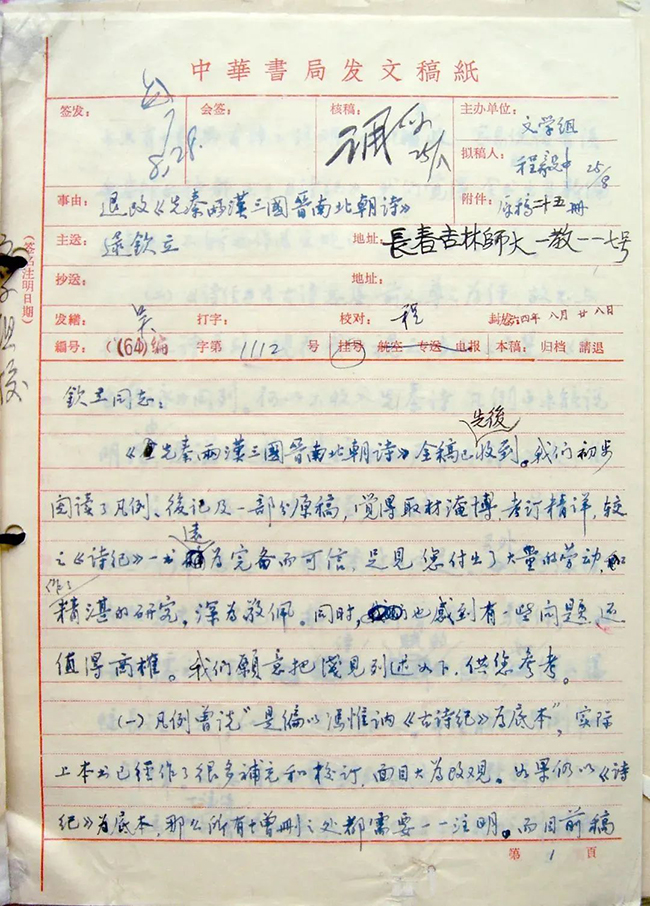 中華書局发文稿紙
签发： 会签： 核稿： 主办单位：文学组
8,28. 25/8 拟稿人：程毅中 25/8
事由：退改《先秦兩漢三國晉南北朝詩》 附件：原稿二十五册
主送：逯欽立 地址：長春吉林師大一教一一七号
抄送： 地址：
发繕： 吴 打字： 校对：程 六四年八月廿八日
编号：(64)编 字第1112号 挂号 航空 专送 电报 本稿：归档 請退
(签名注明日期)
欽立同志：
《先秦兩漢三國晉南北朝詩》全稿已先後收到。我们初步
阅读了凡例、後记及一部分原稿，觉得取材淹博，考订精详，较
之《诗纪》一书遠为完备而可信，足见您付出了大量的劳动，
作了精湛的研究，深为敬佩。同时，也感到有些问题还
值得商榷。我们願意把浅见列述以下，供您参考。
(一)凡例曾说"是编以馮惟讷《古诗纪》为底本"，实际
上本书已經作了很多補充和校订，面目大为改观。如果仍以《诗
纪》为底本，那么所有增删之处都需要一一注明。而目前稿
第1頁